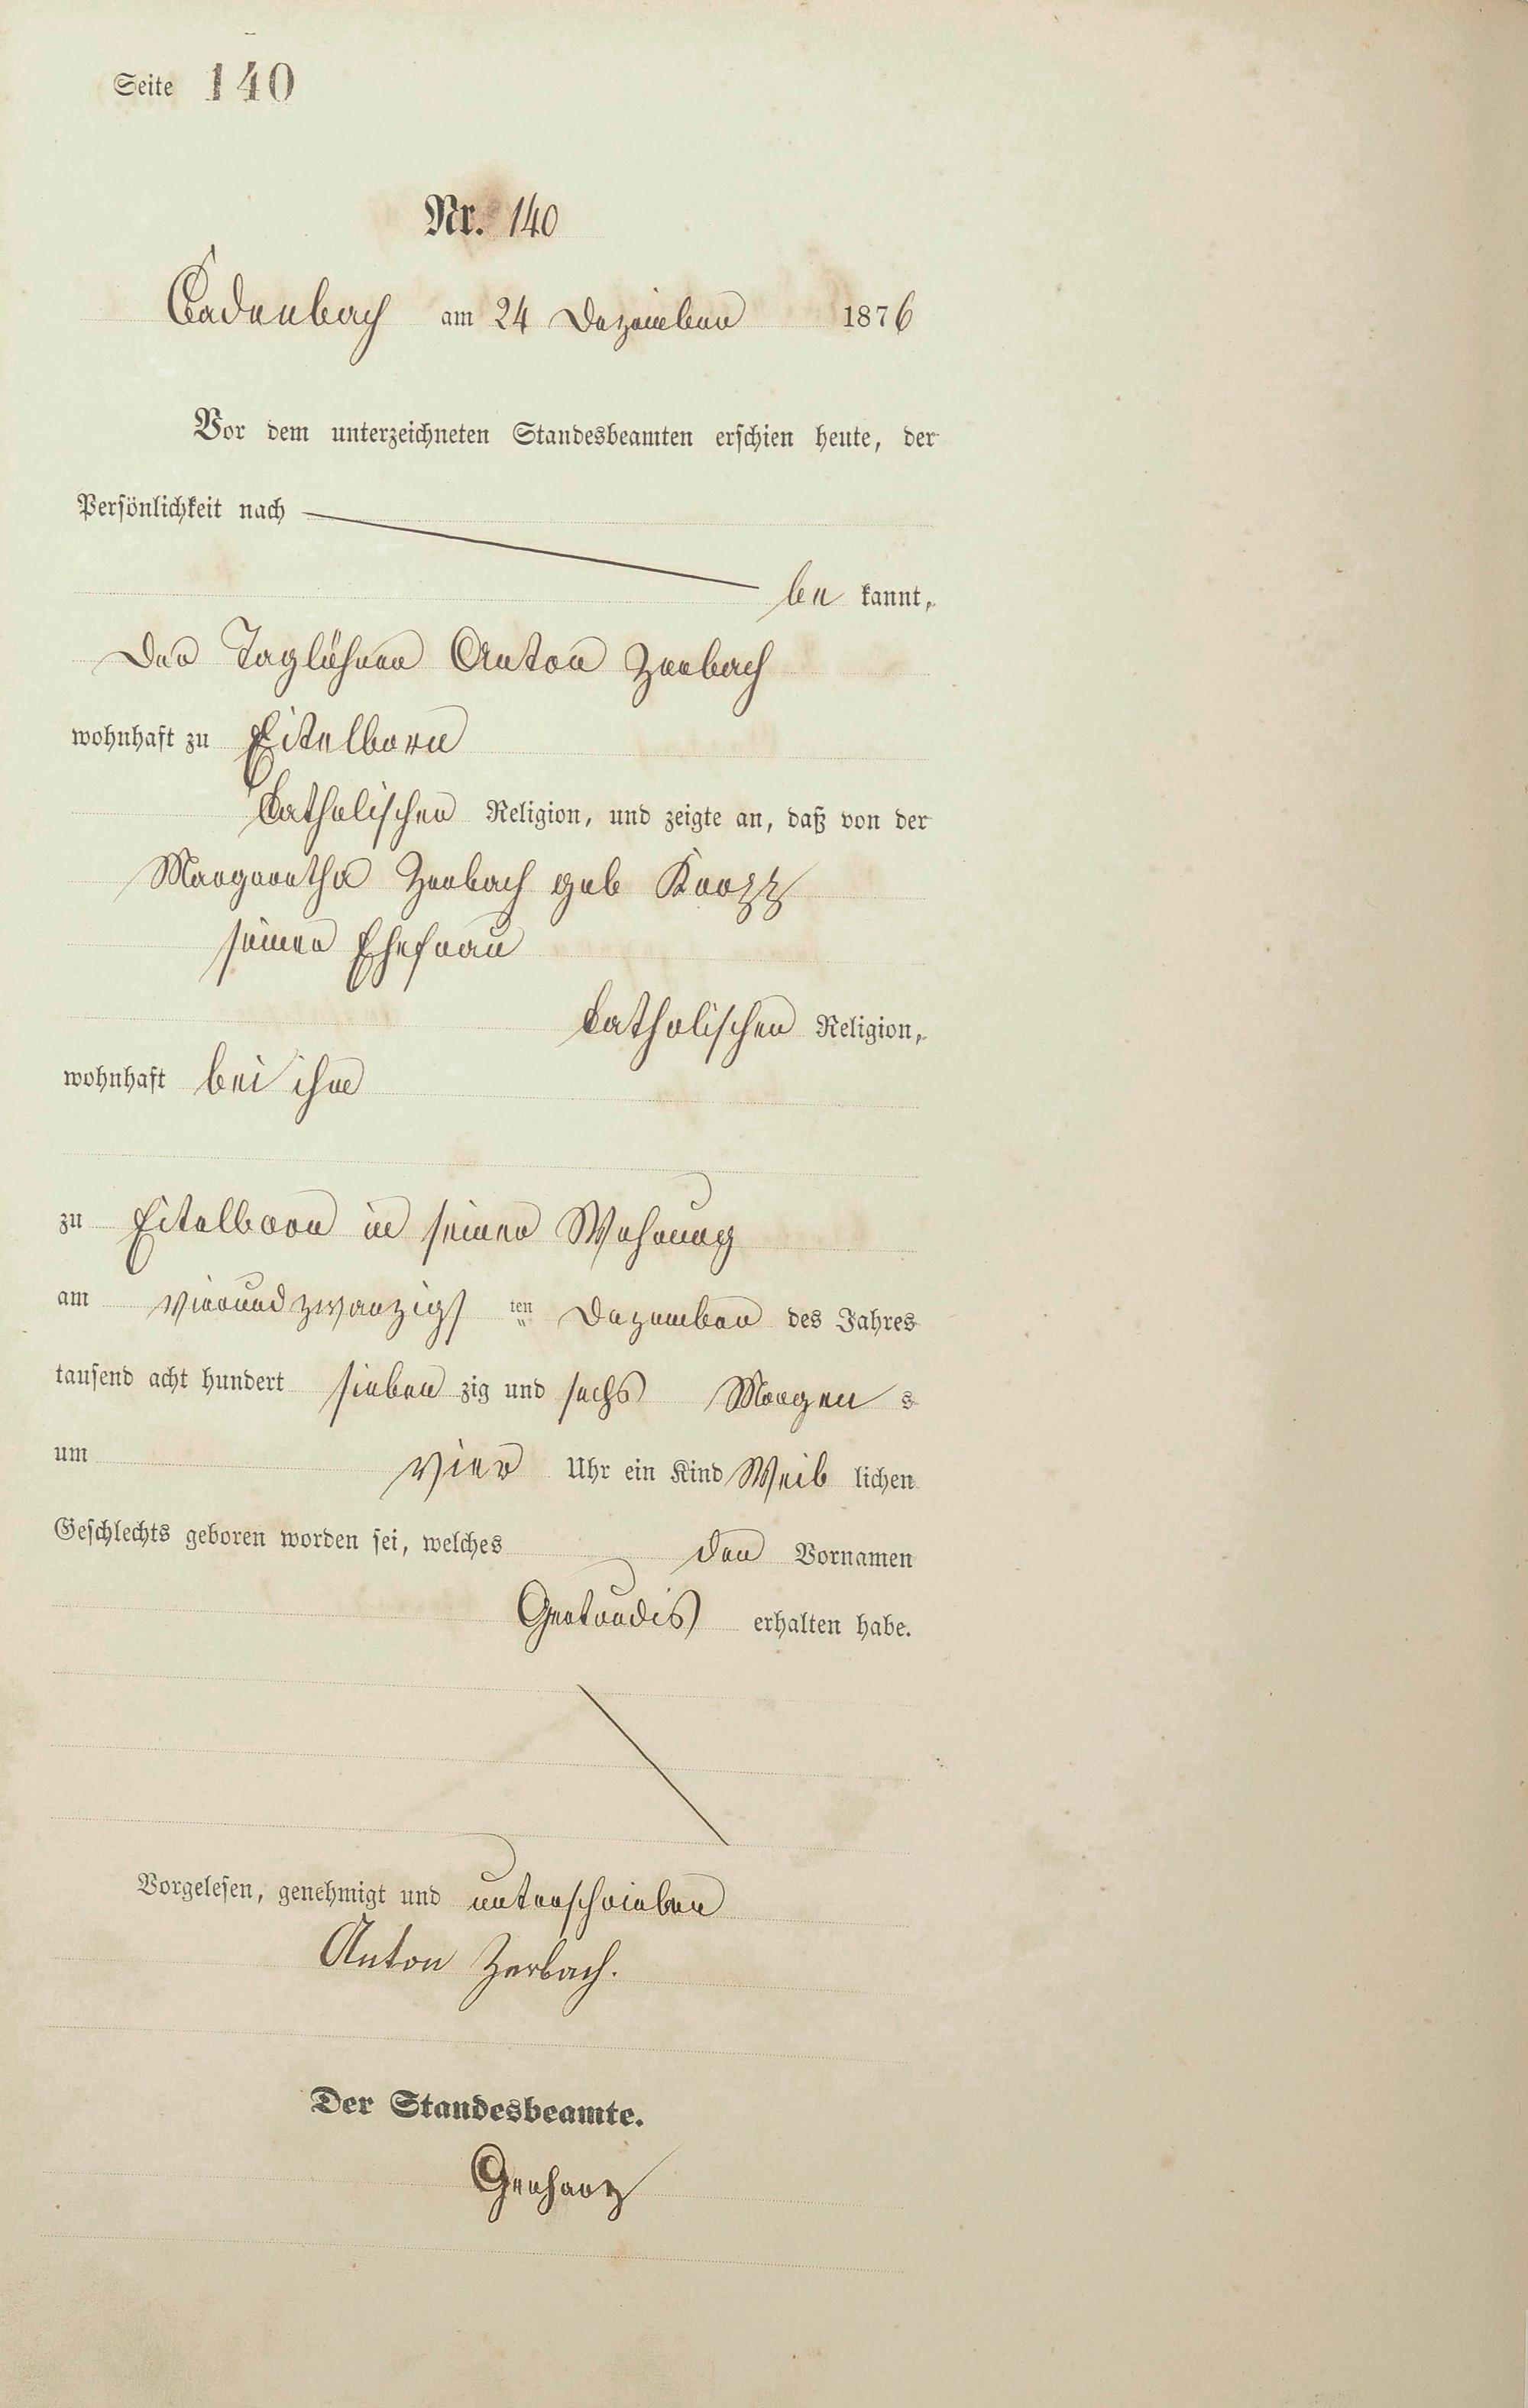 Seite 140
Nr. 140
Cadenbach am 24 Dezember 1876
Vor dem unterzeichneten Standesbeamten erschien heute, der
Persönlichkeit nach
be kannt,
Der Taglöhner Anton Zerbach
wohnhaft zu Eitelborn
Catholischer Religion, und zeigte an, daß von der
Margaretha Zerbach geb
seiner Ehefrau
Catholischer Religion,
wohnhaft bei ihm
zu Eitelborn in seiner Wohnung
am vierundzwanzigs ten Dezember des Jahres
tausend acht hundert sieben zig und sechs Morgen s
um vier Uhr ein Kind Weib lichen
Geschlechts geboren worden sei, welches den Vornamen
Gertrudis erhalten habe.
Vorgelesen, genehmigt und unterschrieben
Anton Zerbach.
Der Standesbeamte.
Gerharz